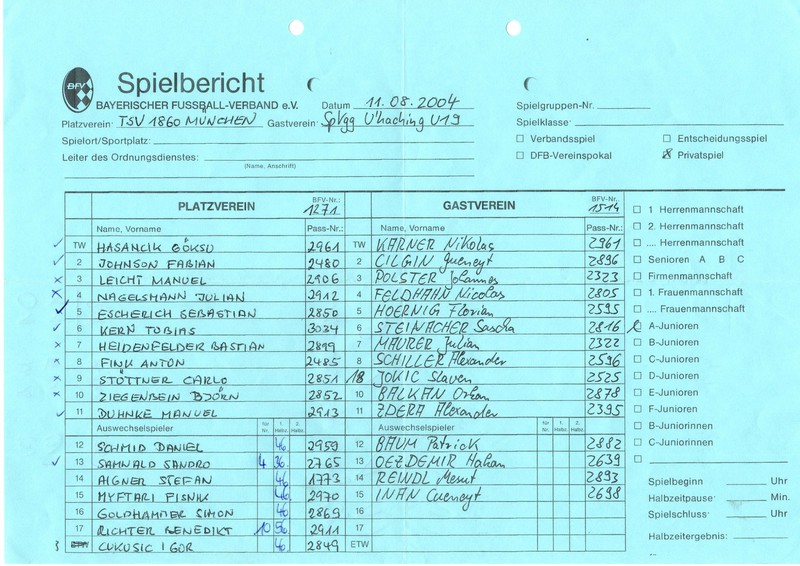 BFV
Spielbericht
BAYERISCHER FUSSBALL-VERBAND e.V.
Datum 11.08.2004
Spielgruppen-Nr.
Platzverein: TSV 1860 MÜNCHEN Gastverein: SpVgg U'haching U19
Spielklasse:
Spielort/Sportplatz:
Verbandsspiel Entscheidungsspiel
Leiter des Ordnungsdienstes:
(Name, Anschrift)
DFB-Vereinspokal Privatspiel
PLATZVEREIN BFV-Nr.: 1271 GASTVEREIN BFV-Nr.: 1514
Name, Vorname Pass-Nr.: Name, Vorname Pass-Nr.:
TW HASANCIK GÖKSU 2961 TW KARNER Nikolas 2961
2 JOHNSON FABIAN 2480 2 CILGIN Gueneyt 2896
3 LEICHT MANUEL 2906 3 POLSTER Johannes 2323
4 NAGELSMANN JULIAN 2912 4 FELDHAHN Nicolas 2805
5 ESCHERICH SEBASTIAN 2850 5 HOERNIG Florian 2595
6 KERN TOBIAS 3034 6 STEINACHER Sascha 2816
7 HEIDENFELDER BASTIAN 2899 7 MAURER Julian 2322
8 FINK ANTON 2485 8 SCHILLER Alexander 2596
9 STÖTTNER CARLO 2851 18 JOKIC Slaven 2525
10 ZIEGENBEIN BJÖRN 2852 10 BALKAN Orhan 2878
11 DUHNKE MANUEL 2913 11 ZDERA Alexander 2395
Auswechselspieler für Nr. 1. Halbz. 2. Halbz. Auswechselspieler für Nr. 1. Halbz. 2. Halbz.
12 SCHMID DANIEL 46. 2959 12 BAUM Patrick 2882
13 SAMNALD SANDRO 4 36. 2765 13 OEZDEMIR Hakan 2639
14 AIGNER STEFAN 46. 1773 14 REINDL Mesut 2893
15 MYFTARI FISNIK 46. 2970 15 INAN Cueneyt 2698
16 GOLDHAMMER SIMON 2869 16
17 RICHTER BENEDIKT 10 2911 17
3 CUKUSIC IGOR 46. 2849 ETW
1 Herrenmannschaft
2. Herrenmannschaft
.... Herrenmannschaft
Senioren A B C
Firmenmannschaft
1. Frauenmannschaft
.... Frauenmannschaft
A-Junioren
B-Junioren
C-Junioren
D-Junioren
E-Junioren
F-Junioren
B-Juniorinnen
C-Juniorinnen
Spielbeginn Uhr
Halbzeitpause: Min.
Spielschluss: Uhr
Halbzeitergebnis: :